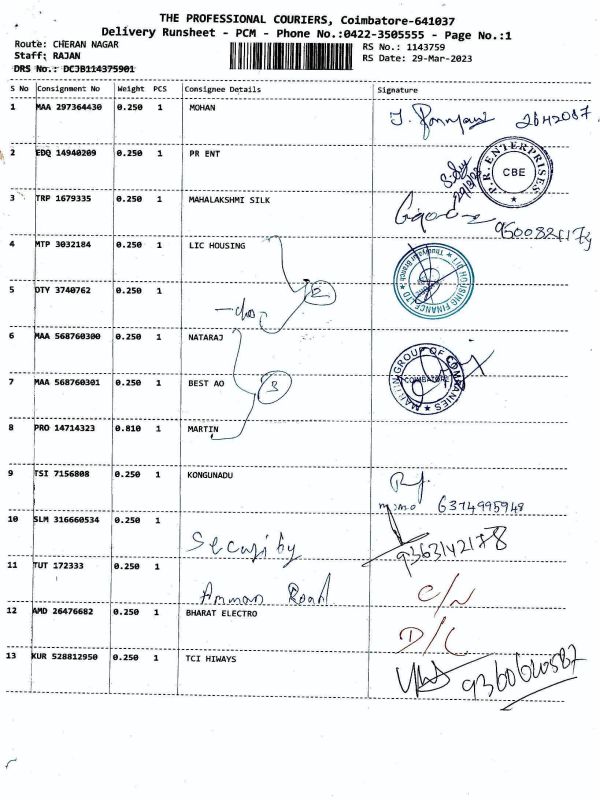 THE PROFESSIONAL COURIERS, Coimbatore-641037
Delivery Runsheet - PCM - Phone No.:0422-3505555 - Page No.:1
Route: CHERAN NAGAR
Staff: RAJAN
DRS No.: DCJB114375901
RS No.: 1143759
RS Date: 29-Mar-2023
S No Consignment No Weight PCS Consignee Details Signature
1 MAA 297364430 0.250 1 MOHAN
2 EDQ 14940209 0.250 1 PR ENT
29/3/23
P.R. ENTERPRISES CBE
3 TRP 1679335 0.250 1 MAHALAKSHMI SILK
4 MTP 3032184 0.250 1 LIC HOUSING
LIC HOUSING FINANCE LTD
5 DTY 3740762 0.250 1
2
6 MAA 568760300 0.250 1 NATARAJ
MARTIN GROUP OF COMPANIES COIMBATORE
7 MAA 568760301 0.250 1 BEST AO
3
8 PRO 14714323 0.810 1 MARTIN
9 TSI 7156808 0.250 1 KONGUNADU
6374995948
10 SLM 316660534 0.250 1
Security
9363142178
11 TUT 172333 0.250 1
Amman Road
C/N
12 AMD 26476682 0.250 1 BHARAT ELECTRO
D/L
13 KUR 528812950 0.250 1 TCI HIWAYS